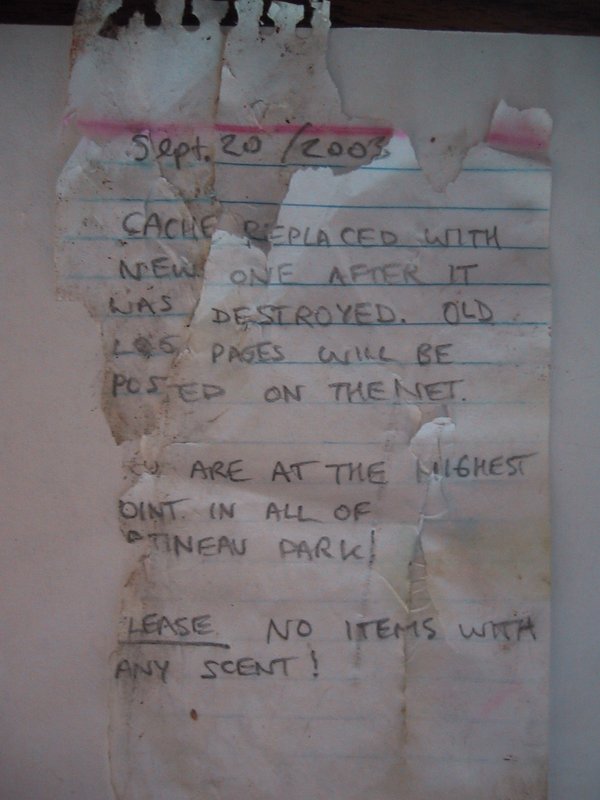 Sept. 20 / 2003
CACHE REPLACED WITH
NEW ONE AFTER IT
WAS DESTROYED. OLD
LOG PAGES WILL BE
POSTED ON THE NET.
ARE AT THE HIGHEST
OINT IN ALL OF
TINEAU PARK!
LEASE NO ITEMS WITH
ANY SCENT!